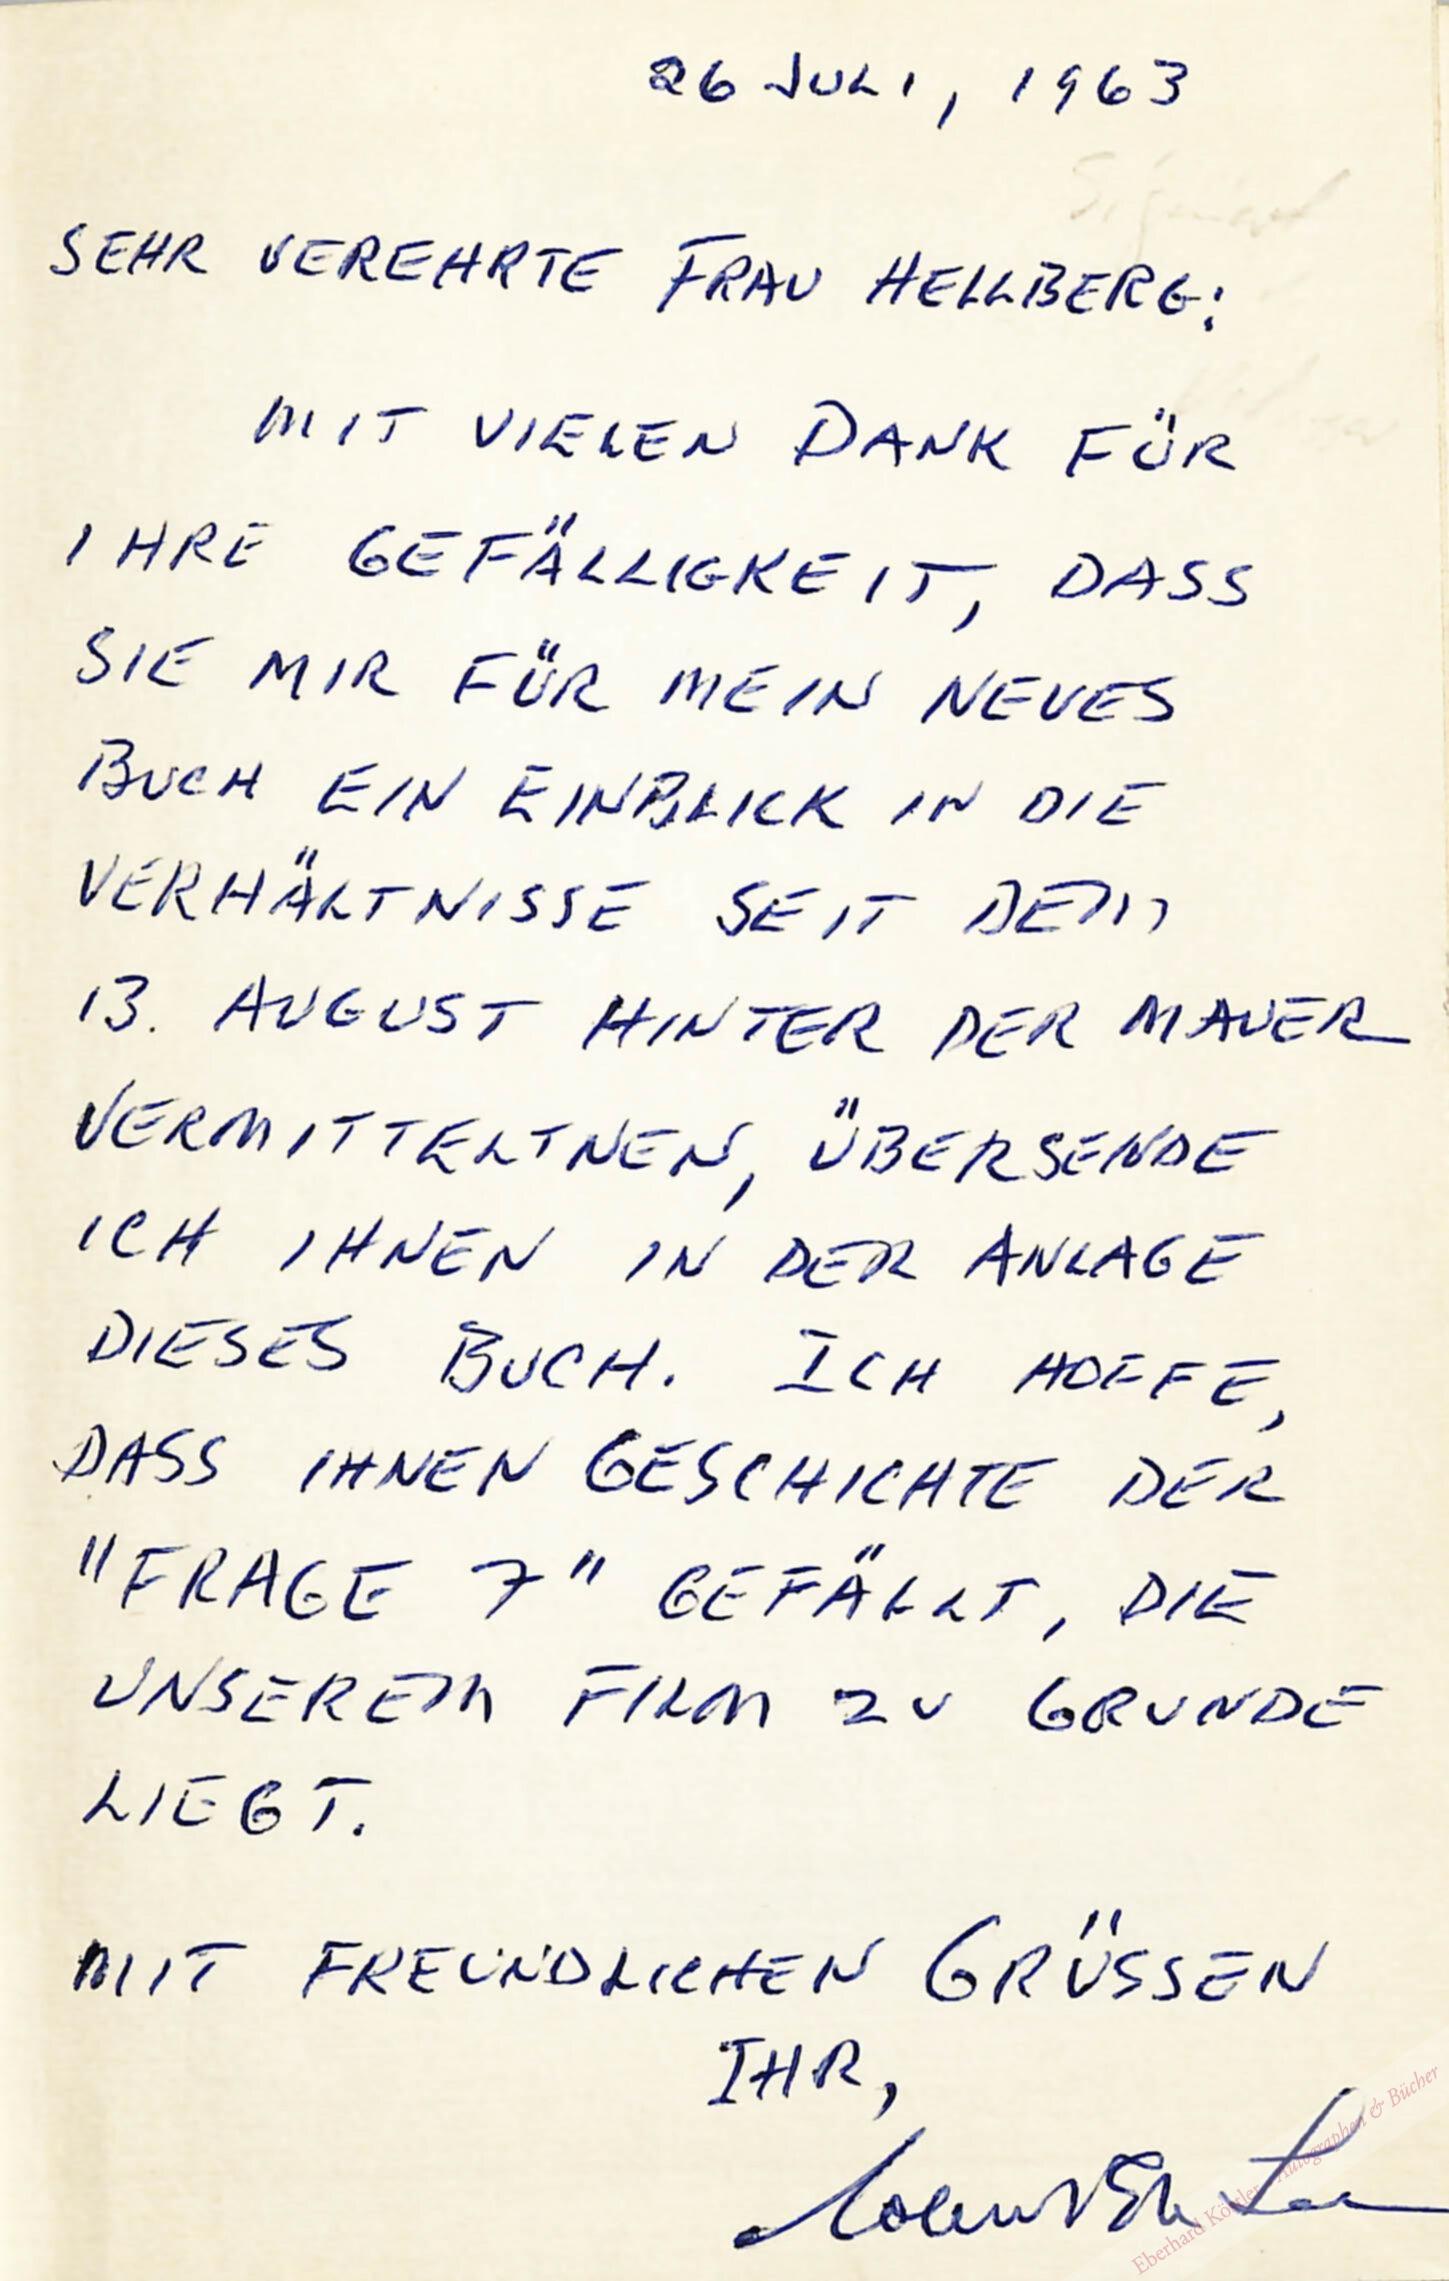 26 JULI, 1963
SEHR VEREHRTE FRAU HELLBERG:
MIT VIELEN DANK FÜR
IHRE GEFÄLLIGKEIT, DASS
SIE MIR FÜR MEIN NEUES
BUCH EIN EINBLICK IN DIE
VERHÄLTNISSE SEIT DEM
13. AUGUST HINTER DER MAUER
VERMITTELTNEN, ÜBERSENDE
ICH IHNEN IN DER ANLAGE
DIESES BUCH. ICH HOFFE,
DASS IHNEN GESCHICHTE DER
"FRAGE 7" GEFÄLLT, DIE
UNSEREM FILM ZU GRUNDE
LIEGT.
MIT FREUNDLICHEN GRÜSSEN
IHR,
Eberhard Köstler Autographen & Bücher